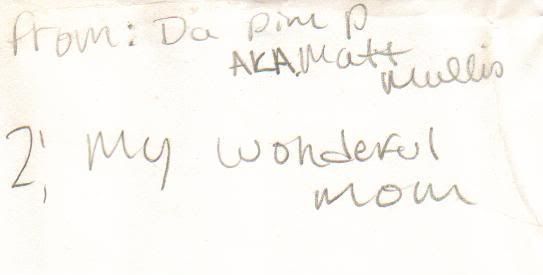 From: Da pimp
AKA. Matt
Mullis
2; My wonderful
mom